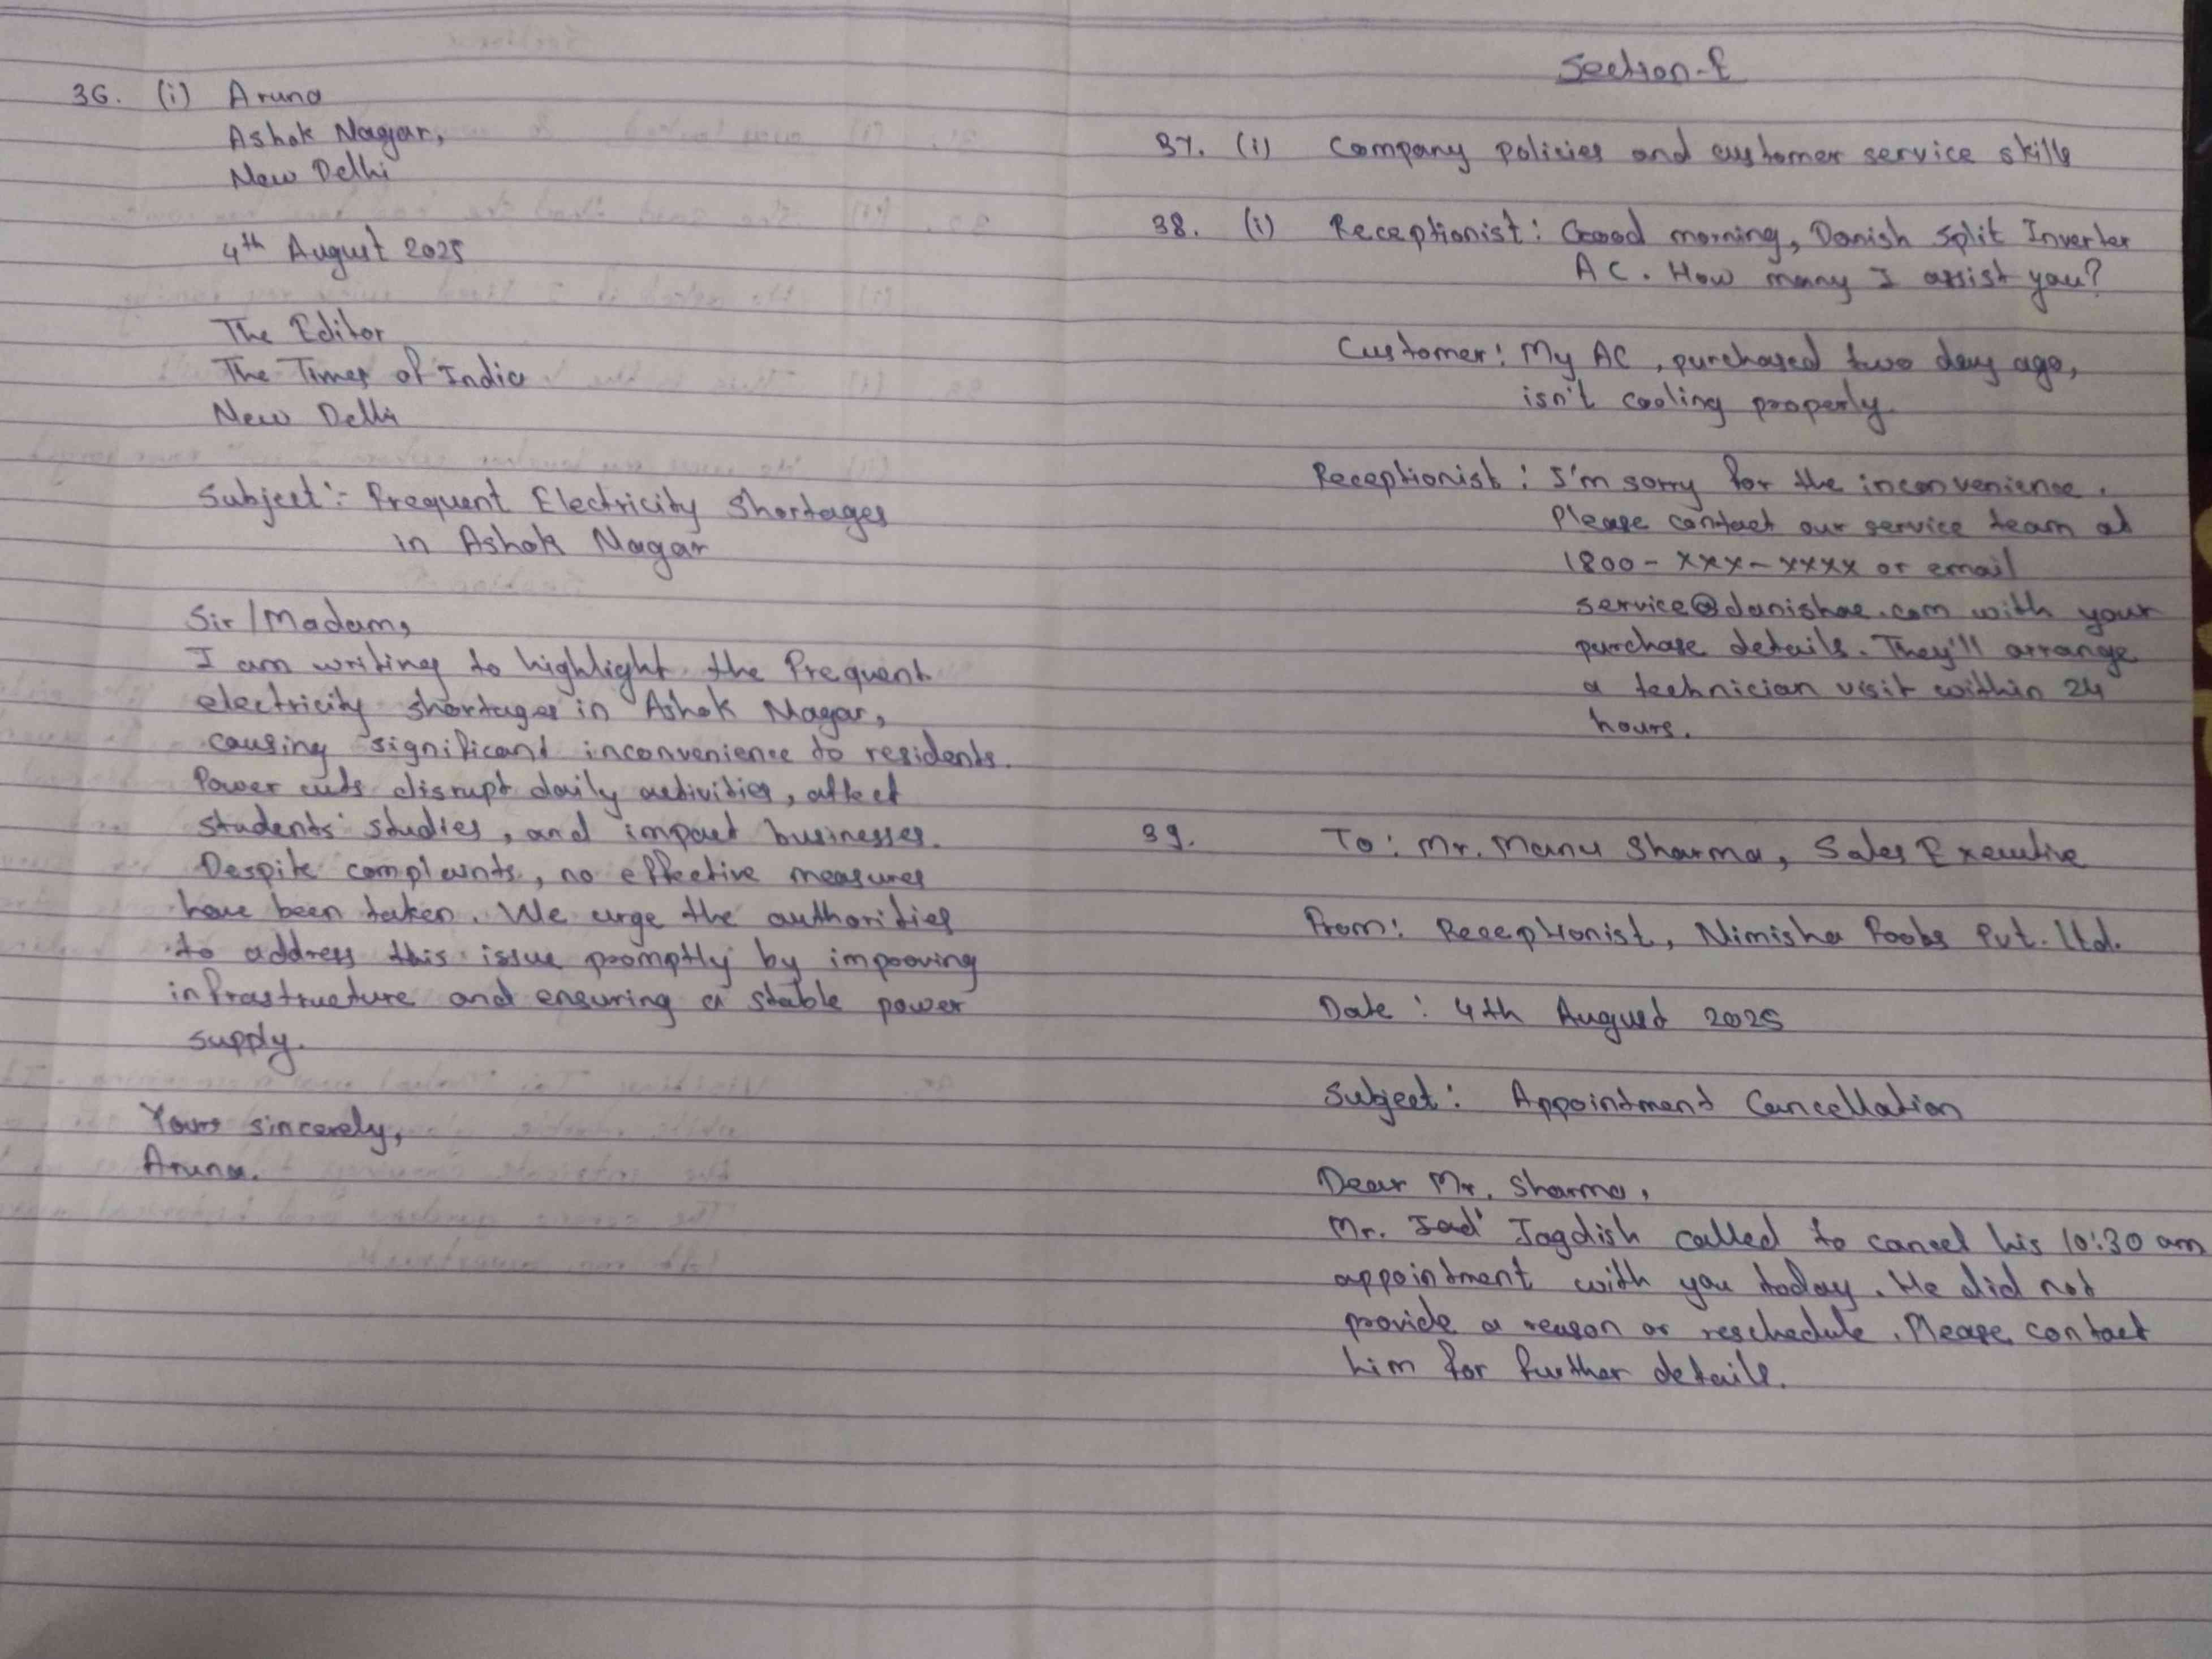 36. (i) Aruna
Ashok Nagar,
New Delhi
4th August 2025
The Editor
The Times of India
New Delhi
Subject:- Frequent Electricity Shortages
in Ashok Nagar
Sir/Madam,
I am writing to highlight the frequent
electricity shortages in Ashok Nagar,
causing significant inconvenience to residents.
Power cuts disrupt daily activities, affect
students' studies, and impact businesses.
Despite complaints, no effective measures
have been taken. We urge the authorities
to address this issue promptly by improving
infrastructure and ensuring a stable power
supply.
Yours sincerely,
Aruna.
Section-E
37. (i) Company policies and customer service skills
38. (i) Receptionist: Good morning, Danish Split Inverter
AC. How many I assist you?
Customer: My AC, purchased two day ago,
isn't cooling properly
Receptionist: I'm sorry for the inconvenience.
Please contact our service team at
1800-xxx-xxxx or email
service@danishac.com with your
purchase details. They'll arrange
a technician visit within 24
hours.
39. To: Mr. Manu Sharma, Sales Executive
From: Receptionist, Nimisha Foods Pvt. Ltd.
Date: 4th August 2025
Subject: Appointment Cancellation
Dear Mr. Sharma,
Mr. Jad' Jagdish called to cancel his 10:30 am
appointment with you today. He did not
provide a reason or reschedule. Please contact
him for further details.